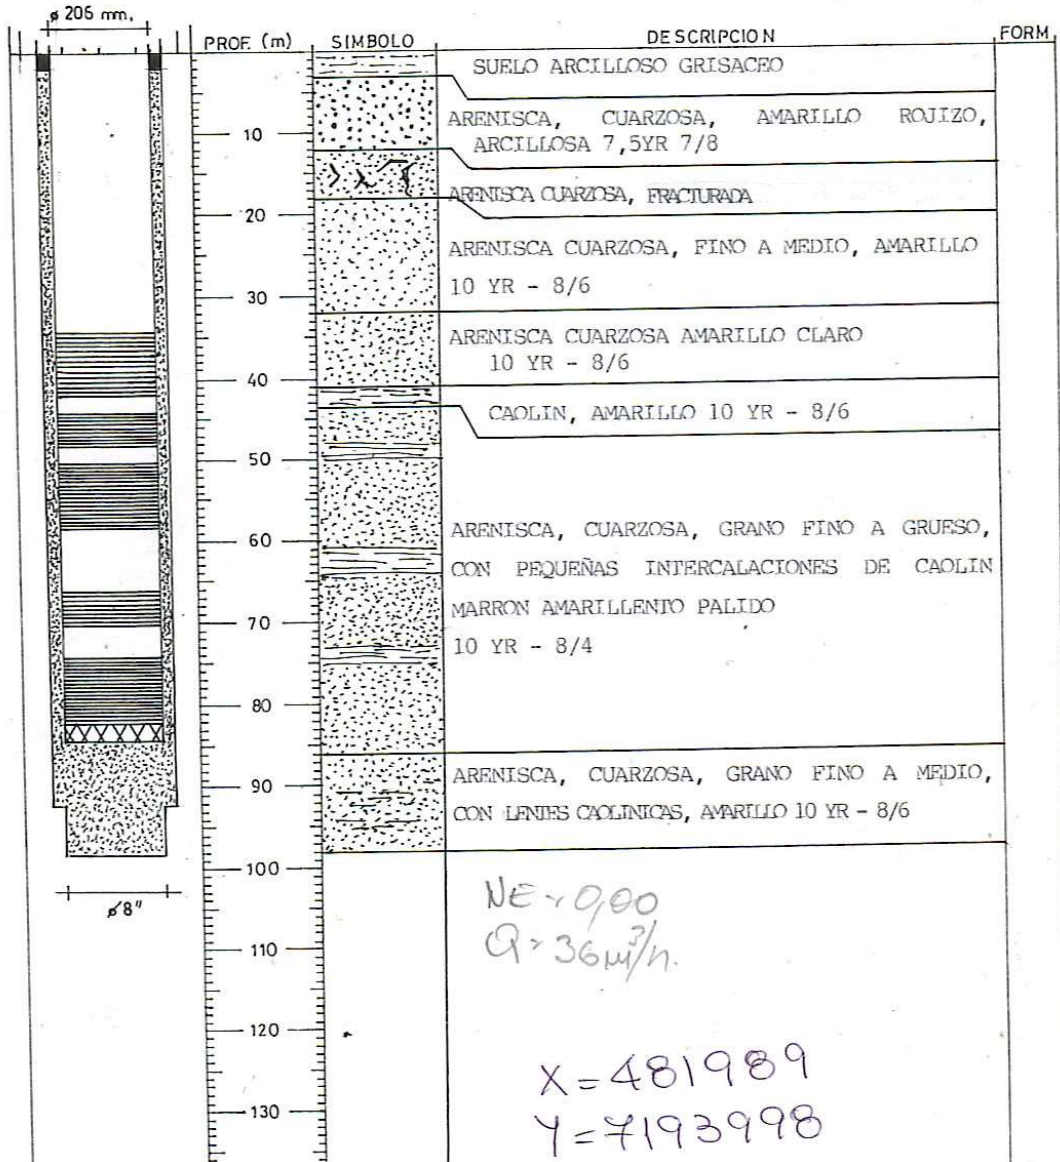 ø 206 mm.
PROF. (m) SIMBOLO DESCRIPCION FORM
SUELO ARCILLOSO GRISACEO
10
ARENISCA, CUARZOSA, AMARILLO ROJIZO,
ARCILLOSA 7,5YR 7/8
20
ARENISCA CUARZOSA, FRACTURADA
ARENISCA CUARZOSA, FINO A MEDIO, AMARILLO
10 YR - 8/6
30
ARENISCA CUARZOSA AMARILLO CLARO
10 YR - 8/6
40
CAOLIN, AMARILLO 10 YR - 8/6
50
60
ARENISCA, CUARZOSA, GRANO FINO A GRUESO,
CON PEQUEÑAS INTERCALACIONES DE CAOLIN
MARRON AMARILLENTO PALIDO
10 YR - 8/4
70
80
90
ARENISCA, CUARZOSA, GRANO FINO A MEDIO,
CON LENTES CAOLINICAS, AMARILLO 10 YR - 8/6
100
ø8"
NE = 0,00
Q = 36 m³/h.
110
120
130
X = 481989
Y = 7193998